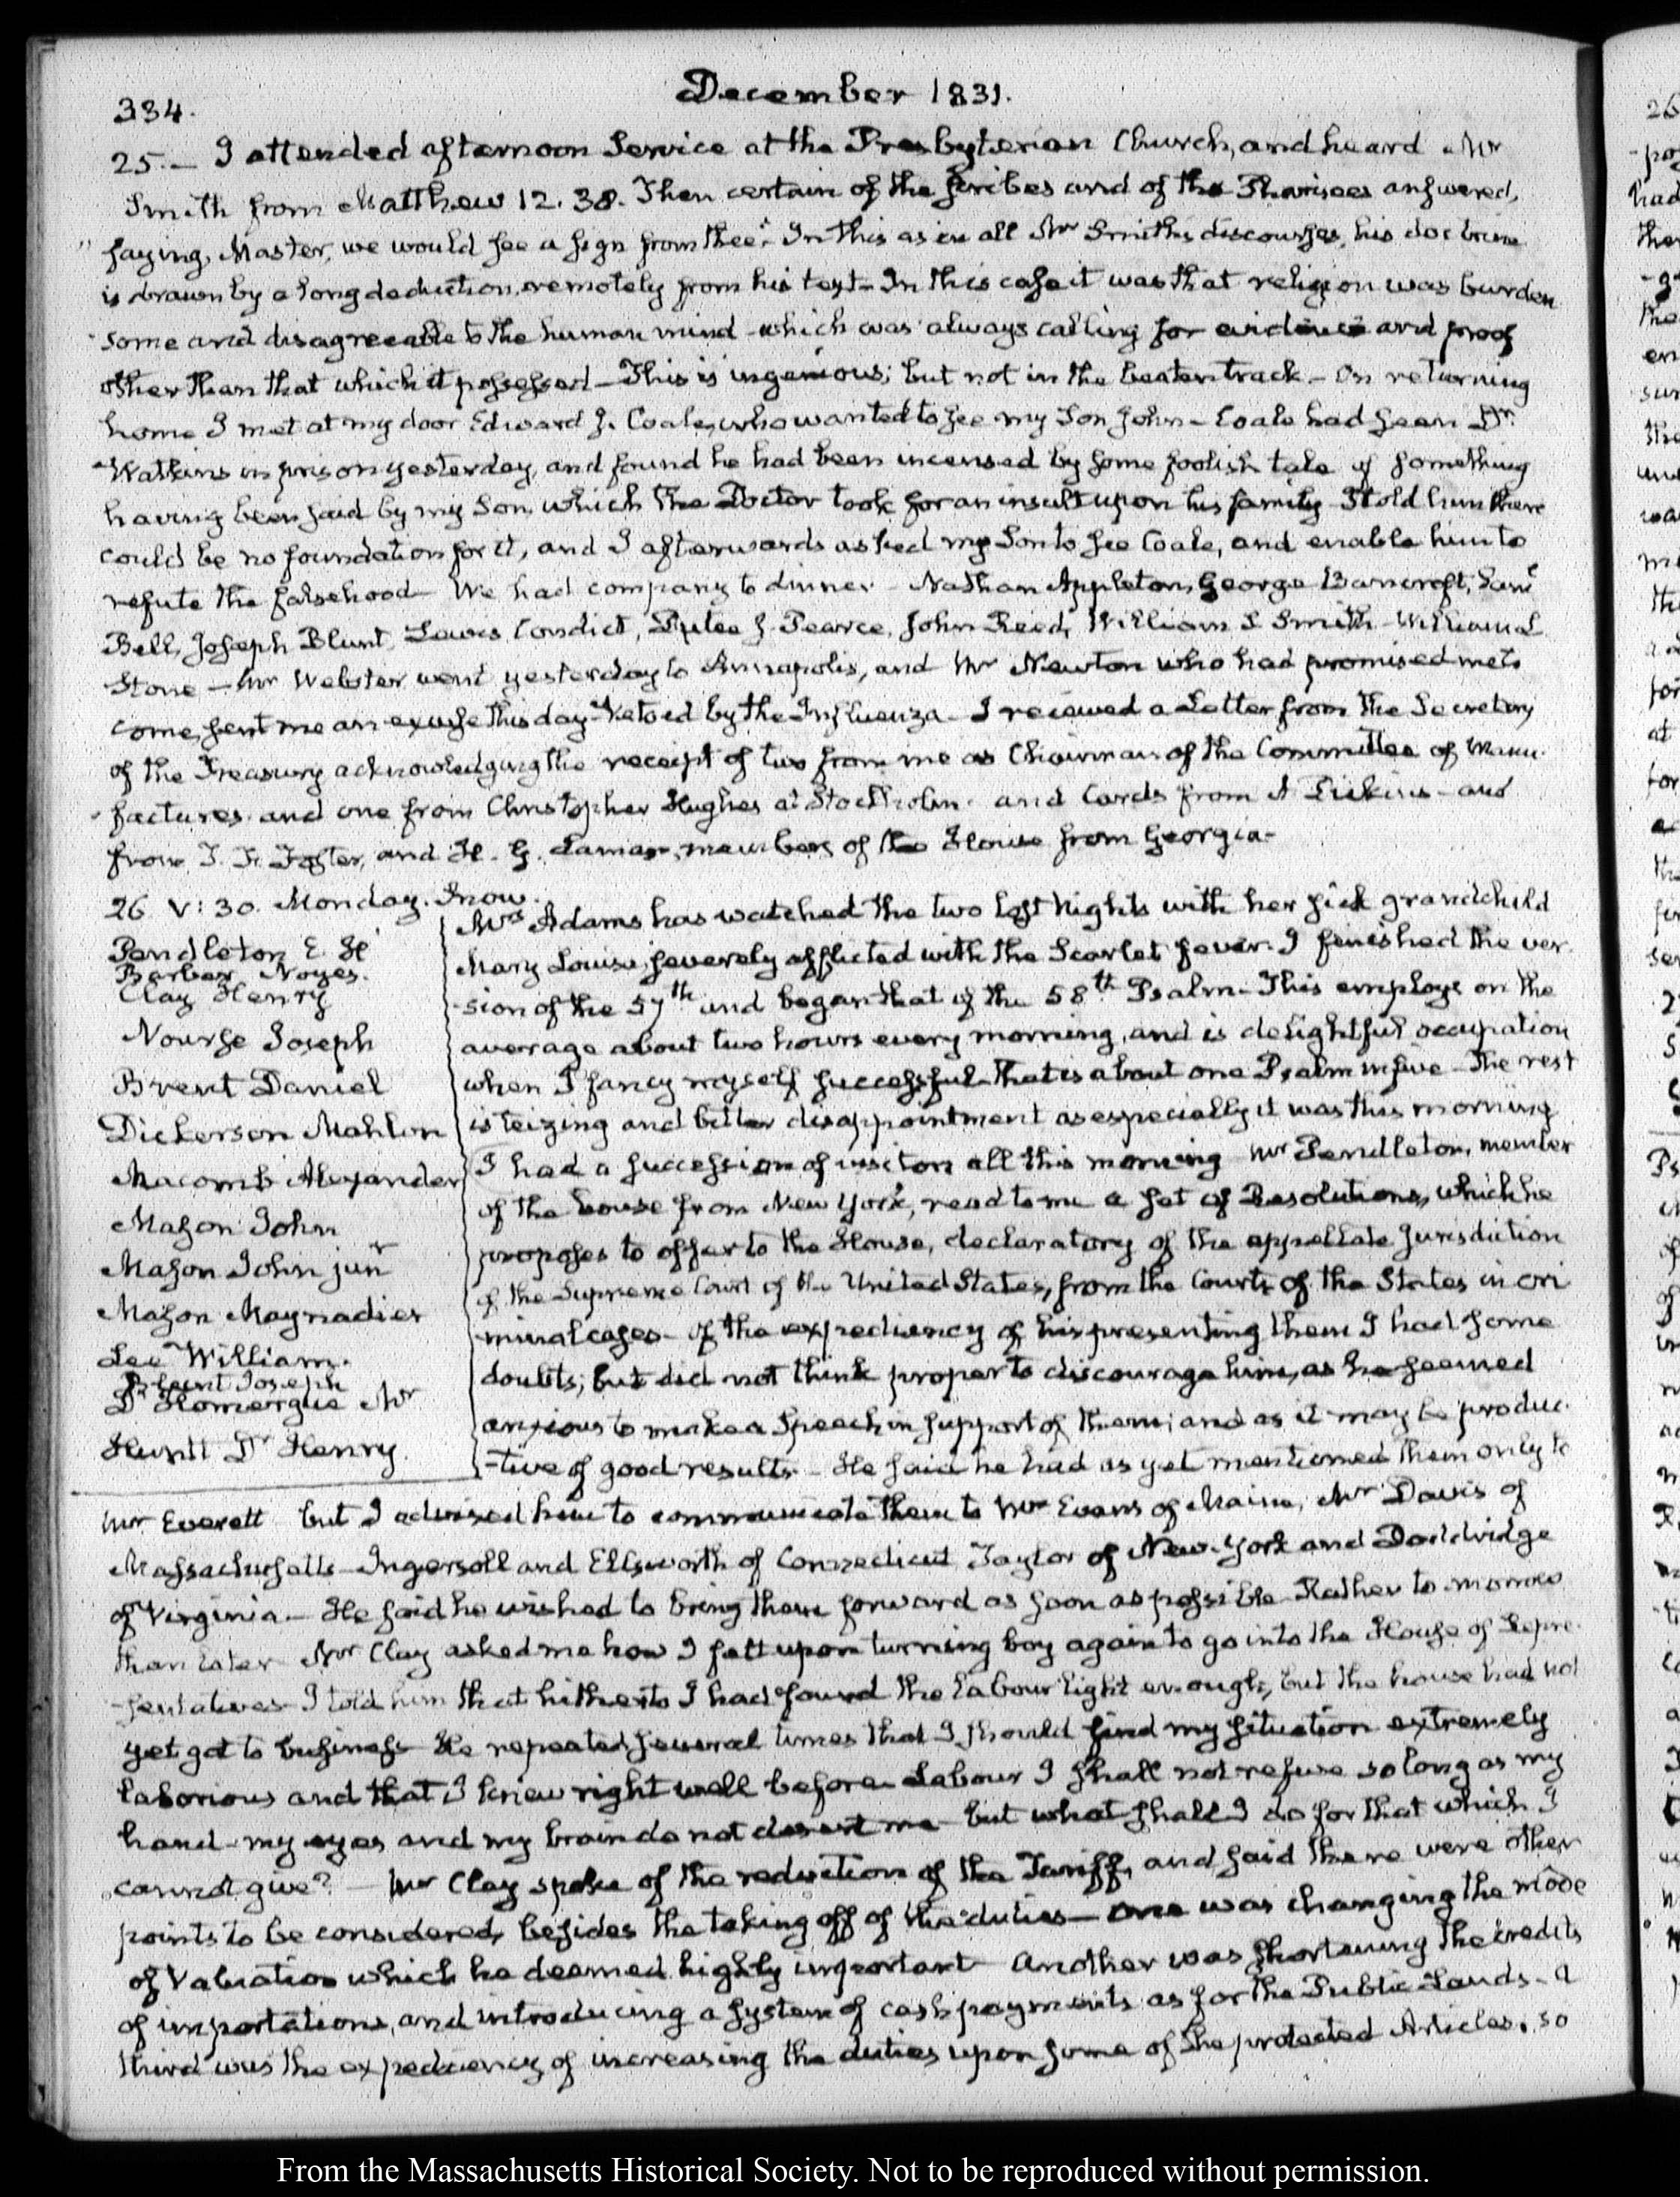 334.
December 1831.
25.— I attended afternoon Service at the Presbyterian Church, and heard Mr
Smith from Matthew 12. 38. Then certain of the scribes and of the Pharisees answered,
"saying, Master, we would see a sign from thee". In this as in all Mr Smith's discourses, his doctrine
is drawn by a long deduction, remotely from his text— In this case it was that religion was burden
-some and disagreeable to the human mind—which was always calling for evidence and proof
other than that which it possessed—This is ingenious; but not in the beaten track— On returning
home I met at my door Edward J. Coale, who wanted to see my Son John— Coale had seen Dr.
Watkins in prison yesterday, and found he had been incensed by some foolish tale of something
having been said by my Son, which the Doctor took for an insult upon his family— I told him there
could be no foundation for it, and I afterwards asked my Son to see Coale, and enable him to
refute the falsehood— We had company to dinner. Nathan Appleton, George Bancroft, Saml
Bell, Joseph Blunt, Lewis Condict, Dutee J. Pearce, John Reed, William S Smith—William L
Stone—Mr Webster went yesterday to Annapolis, and Mr Newton who had promised me to
come, sent me an excuse this day— Ketoed by the Influenza— I received a Letter from the Secretary
of the Treasury acknowledging the receipt of two from me as Chairman of the Committee of Manu-
-factures and one from Christopher Hughes at Stockholm. and Cards from A Dickins—and
from T. F. Foster, and H. G. Lamar, members of the House from Georgia—
26. V: 30. Monday. Snow.
Pendleton E. H
Barber Noyes.
Clay Henry
Nourse Joseph
Brent Daniel
Dickerson Mahlon
Macomb Alexander
Mason John
Mason John junr
Mason Maynadier
Lee William.
Blunt Joseph
D'Homergue Mr
Huntt Dr Henry
Mrs Adams has watched the two last Nights with her sick grandchild
Mary Louisa, severely afflicted with the Scarlet fever. I finished the ver
-sion of the 57th and began that of the 58th Psalm—This employs on the
average about two hours every morning, and is delightful occupation
when I fancy myself successful—That is about one Psalm in five—The rest
is teizing and bitter disappointment as especially it was this morning
I had a succession of visitors all this morning Mr Pendleton, member
of the house from New York, read to me a set of Resolutions, which he
proposes to offer to the House, declaratory of the appellate jurisdiction
of the Supreme Court of the United States, from the Courts of the States in cri
-minal cases— Of the expediency of his presenting them I had some
doubts; but did not think proper to discourage him, as he seemed
anxious to make a Speech in support of them; and as it may be produc-
-tive of good results— He said he had as yet mentioned them only to
Mr Everett but I advised him to communicate them to Mr Evans of Maine, Mr Davis of
Massachusetts—Ingersoll and Ellsworth of Connecticut Taylor of New-York and Doddridge
of Virginia.— He said he wished to bring them forward as soon as possible Rather to-morrow
than later Mr Clay asked me how I felt upon turning boy again to go into the House of Repre-
-sentatives—I told him that hitherto I had found the labour light enough, but the house had not
yet got to business— He repeated several times that I should find my situation extremely
laborious and that I knew right well before—Labour I shall not refuse so long as my
hand my eyes and my brain do not desert me—but what shall I do for that which I
cannot give?— Mr Clay spoke of the reduction of the Tariff, and said there were other
points to be considered, besides the taking off of the duties—One was changing the mode
of Valuation which he deemed highly important— Another was shortening the credits
of importations, and introducing a system of cash payments as for the Public Lands— a
third was the expediency of increasing the duties upon some of the protected Articles, so
From the Massachusetts Historical Society. Not to be reproduced without permission.